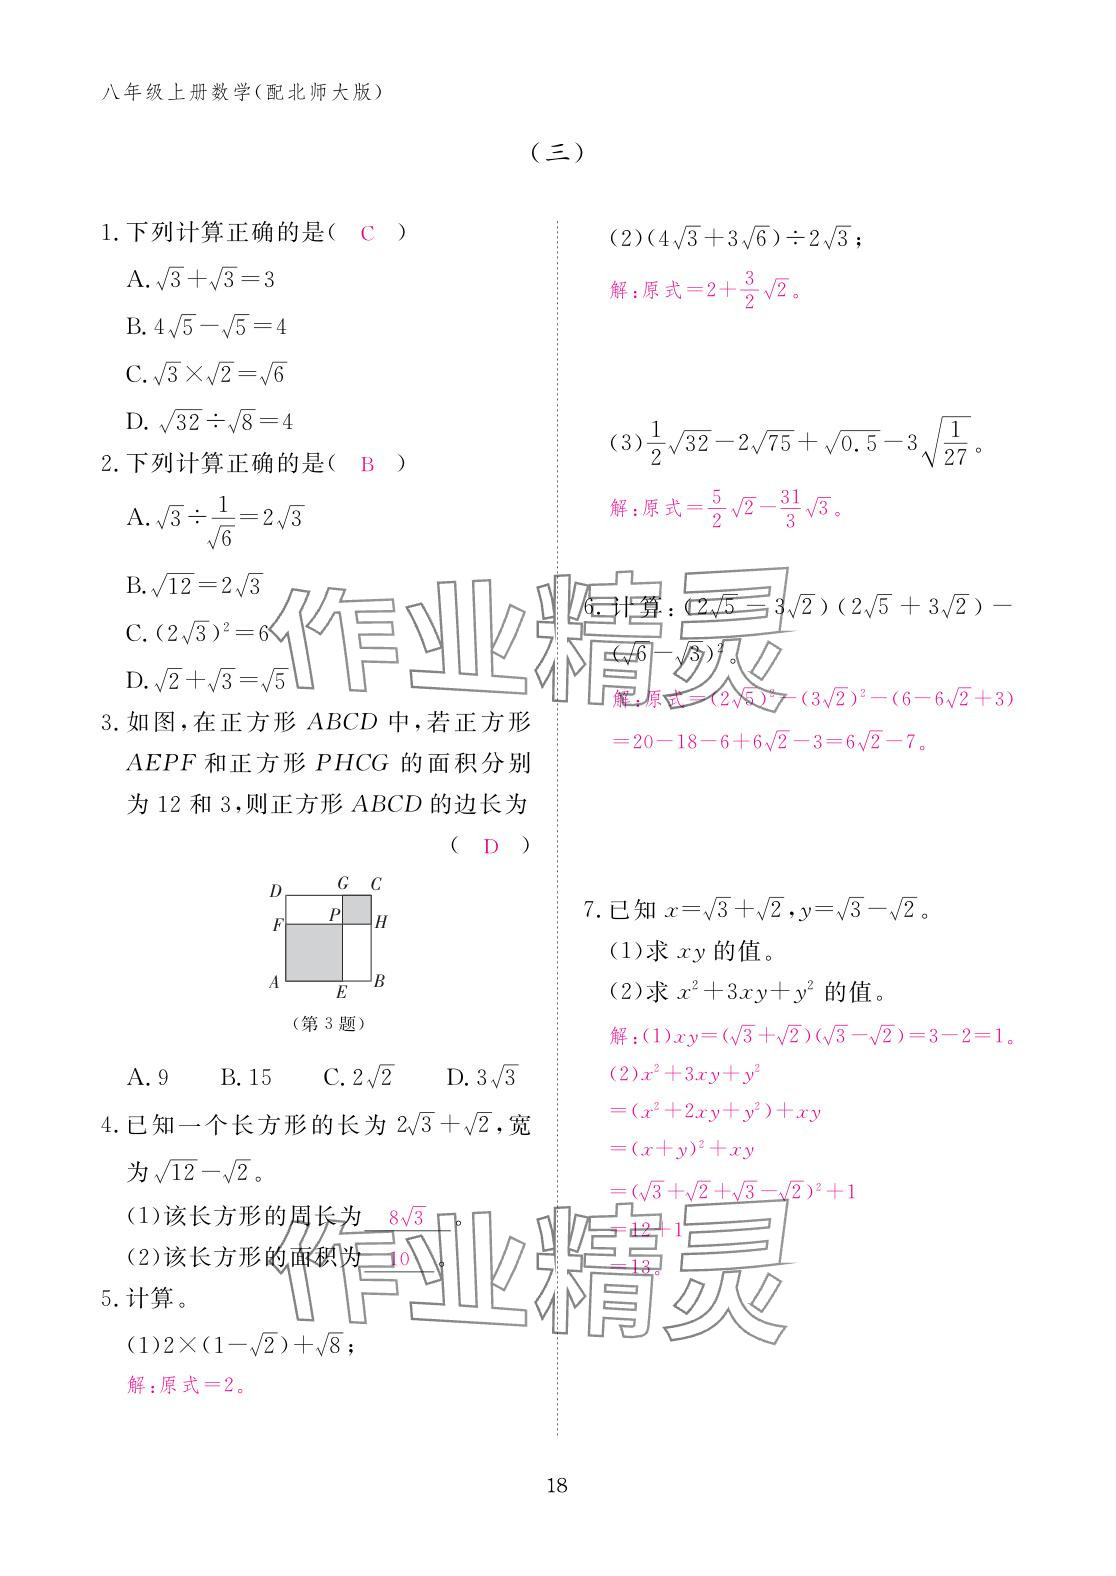 八年级上册数学(配北师大版)
(三)
1. 下列计算正确的是( C )
A. √3+√3=3
B. 4√5-√5=4
C. √3×√2=√6
D. √32÷√8=4
2. 下列计算正确的是( B )
A. √3÷1/√6=2√3
B. √12=2√3
C. (2√3)²=6
D. √2+√3=√5
3. 如图,在正方形 ABCD 中,若正方形
AEPF 和正方形 PHCG 的面积分别
为 12 和 3,则正方形 ABCD 的边长为
( D )
D G C
F P H
A E B
(第 3 题)
A. 9 B. 15 C. 2√2 D. 3√3
4. 已知一个长方形的长为 2√3+√2,宽
为√12-√2。
(1)该长方形的周长为 8√3 。
(2)该长方形的面积为 10 。
5. 计算。
(1)2×(1-√2)+√8;
解:原式=2。
(2)(4√3+3√6)÷2√3;
解:原式=2+3/2√2。
(3)1/2√32-2√75+√0.5-3√(1/27)。
解:原式=5/2√2-31/3√3。
6. 计算:(2√5-3√2)(2√5+3√2)-
(√6-√3)²。
解:原式=(2√5)²-(3√2)²-(6-6√2+3)
=20-18-6+6√2-3=6√2-7。
7. 已知 x=√3+√2,y=√3-√2。
(1)求 xy 的值。
(2)求 x²+3xy+y² 的值。
解:(1)xy=(√3+√2)(√3-√2)=3-2=1。
(2)x²+3xy+y²
=(x²+2xy+y²)+xy
=(x+y)²+xy
=(√3+√2+√3-√2)²+1
=12+1
=13。
作业精灵
作业精灵
18